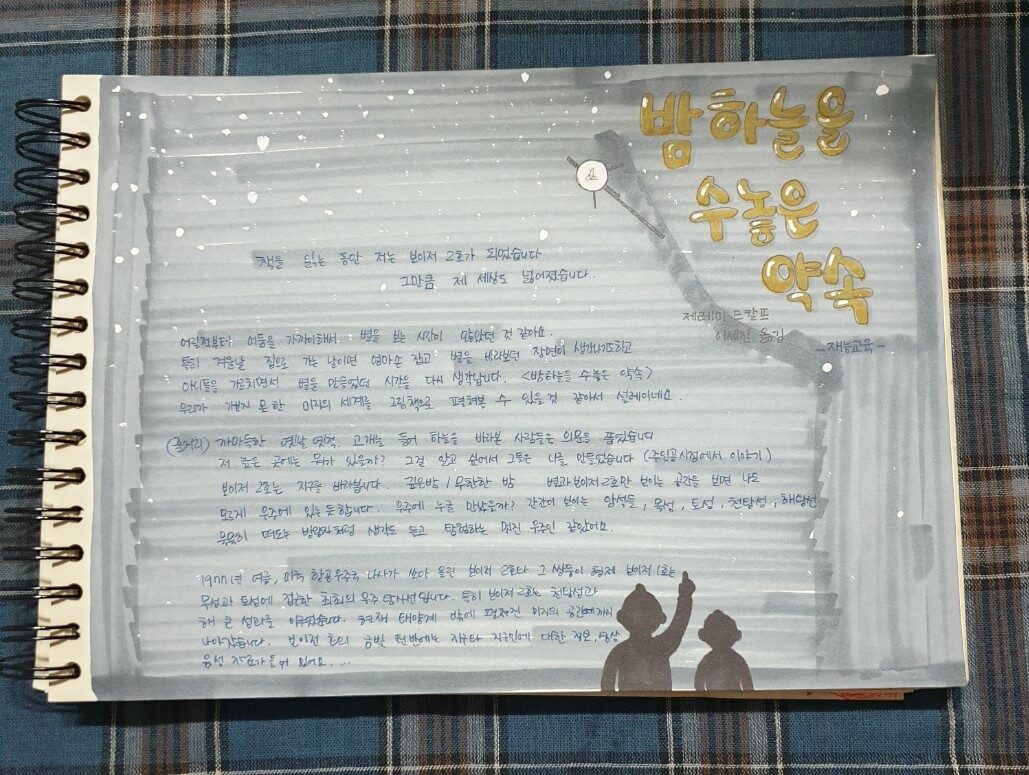 밤하늘을
수놓은
약속
제레미 드칼프
이세진 옮김
-재능교육-
책을 읽는 동안 저는 보이저 2호가 되었습니다
그만큼 제 세상도 넓어졌습니다.
어릴적부터 어둠을 가까이해서 별을 보는 시간이 많았던 것 같아요.
특히 겨울날 집으로 가는 날이면 엄마손 잡고 별을 바라보던 장면이 생각나기도하고
아이들을 가르치면서 별을 만들었던 시간을 다시 생각납니다. <밤하늘을 수놓은 약속>
우리가 가보지 못한 미지의 세계를 그림책으로 펼쳐본 수 있을것 같아서 설레이네요.
(줄거리) 까마득한 옛날 옛적, 고개를 들어 하늘을 바라본 사람들은 의문을 품었습니다
저 높은 곳에는 뭐가 있을까? 그걸 알고 싶어서 그들은 나를 만들었습니다 (주인공시점에서 이야기)
보이저 2호는 지구를 바라봅니다. 깊은밤 / 무한한 밤 별과보이저2호만 보이는 공간을 보면 나도
모르게 우주에 있는듯합니다. 우주에 누굴 만났을까? 간간이 보이는 암석들, 목성, 토성, 천왕성, 해왕성
묵묵히 떠도는 방랑자처럼 생각도 듣고 탐험하는 멋진 우주인 같았어요.
1977년 여름, 미국 항공우주국 나사가 쏘아 올린 보이저 2호나 그 쌍둥이 형제 보이저 1호는
목성과 토성에 접근한 최초의 우주 탐사선입니다. 특히 보이저 2호는 천왕성과
해 큰 성과를 이루었습니다. 현재 태양계 밖에 펼쳐진 미지의 공간에까지
나아갔습니다. 보이저 호의 금빛 원반에는 지구와 지구인에 대한 정보, 영상
음성 자료가 있어요....